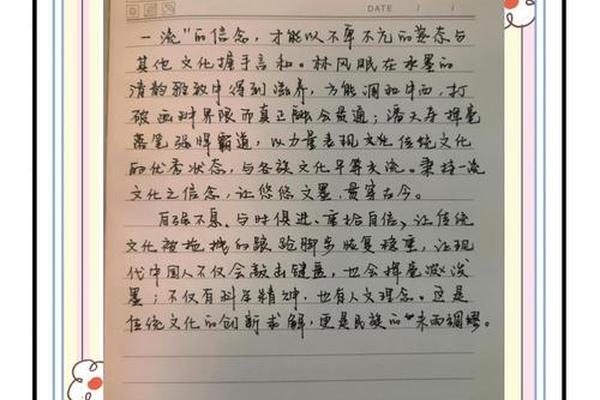 DATE / /
一流"的信念，才能以不卑不亢的姿态与
其他文化握手言和。林风眠在水墨的
清韵雅致中得到滋养，方能调和中西，打
破画种界限而真正融会贯通；潘天寿挥毫
落笔强悍霸道，以力量表现文化传统文化
的优秀状态，与各族文化平等交流。秉持一流
文化之信念，让悠悠文墨，贯穿古今。
自强不息、与时俱进、重拾自信、让传统
文化被拖拽的踉跄脚步恢复稳重，让现
代中国人不仅会敲击键盘，也会挥毫泼
墨；不仅有科学精神，也有人文理念。这是
传统文化的创新求解，更是民族的"未雨绸缪。